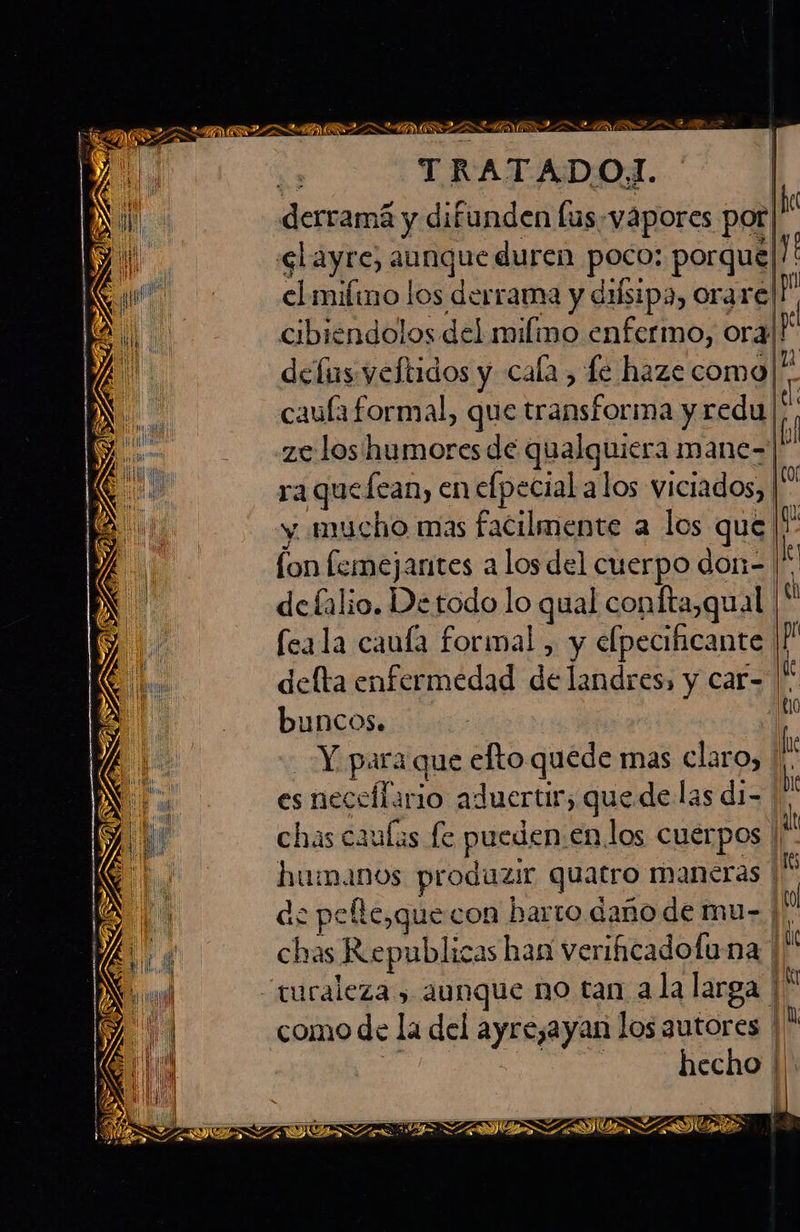 TRATADO.I.
derramã y difunden ſus vapores por
el ayre, aunque duren poco: porque
el miſmo los derrama y diſsipa, ora re
cibiendolos del miſmo enfermo, ora
de ſus veſtidos y caſa, ſe haze como
cauſa formal, que transforma y redu
ze los humores de qualquiera mane-
ra que ſean, en eſpecial a los viciados,
y mucho mas facilmente a los que
ſon ſemejantes a los del cuerpo don-
de ſalio. De todo lo qual conſta, qual
ſea la cauſa formal, y eſpecificante
deſta enfermedad de landres, y car-
buncos.
Y para que eſto quede mas claro,
es neceſſario aduertir, que de las di-
chas cauſas ſe pueden en los cuerpos
humanos produzir quatro maneras
de peſte, que con harto daño de mu-
chas Republicas han verificado ſu na
turaleza, aunque no tan a la larga
como de la del ayre, ayan los autores
hecho